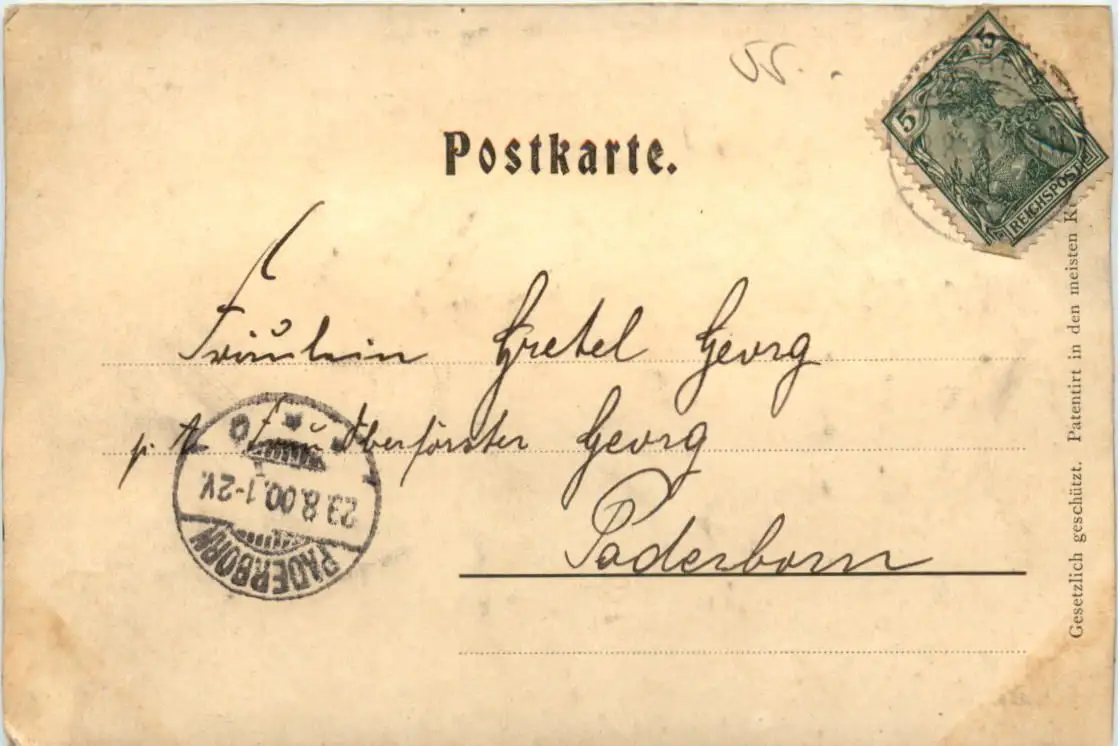 55.
5
5
REICHSPOST
Postkarte.
Fräulein Gretel Georg
p. A. Frau Oberförster Georg
Paderborn
PADERBORN
23.8.00.1-2V.
Gesetzlich geschützt. Patentirt in den meisten